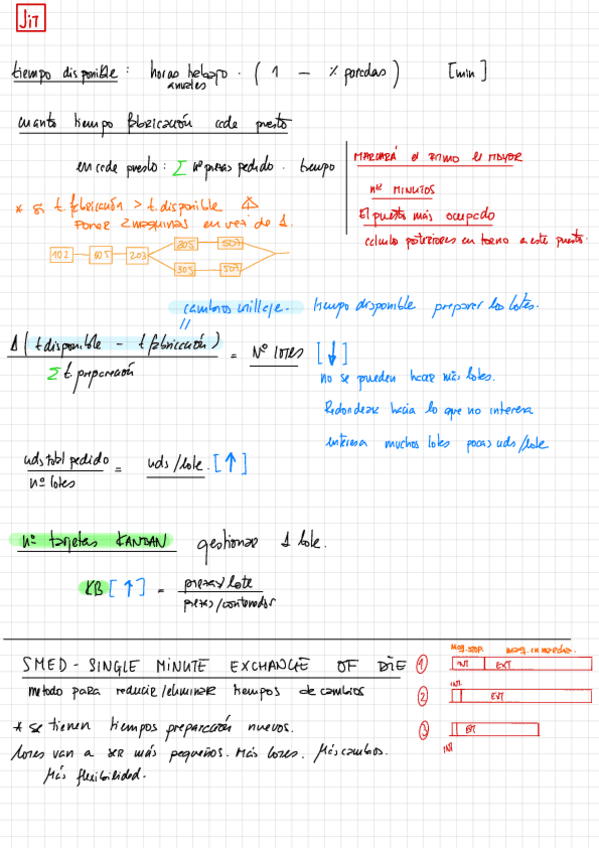 JiT
tiempo disponible : horas trabajo · ( 1 - % paradas ) [min]
anuales
cuanto tiempo fabricación cada puesto
en cada puesto : Σ nº piezas pedido · tiempo
MARCARÁ el RITMO el MAYOR
nº MINUTOS
El puesto más ocupado
calculos posteriores en torno a este puesto.
* si t. fabricación > t. disponible ⚠
PONER 2 maquinas en vez de 1.
102 605 203 305 507
305 507
cambios utillaje. tiempo disponible preparar los lotes.
Δ ( t disponible - t fabricación ) = Nº lotes [↓]
Σ t. preparación
no se pueden hacer más lotes.
Redondear hacia lo que no interesa
interesa muchos lotes pocas uds/lote
uds total pedido = uds/lote. [↑]
nº lotes
nº tarjetas KANBAN gestionar 1 lote.
KB [↑] = piezas/lote
piezas/contenedor
SMED - SINGLE MINUTE EXCHANGE OF DIE
metodo para reducir/eliminar tiempos de cambios
* se tienen tiempos preparación nuevos.
Lotes van a ser más pequeños. Más lotes. Más cambios.
Más flexibilidad.
Maq. stop. maq. en marcha.
1 INT EXT
INT
2 EXT
3 EXT
INT